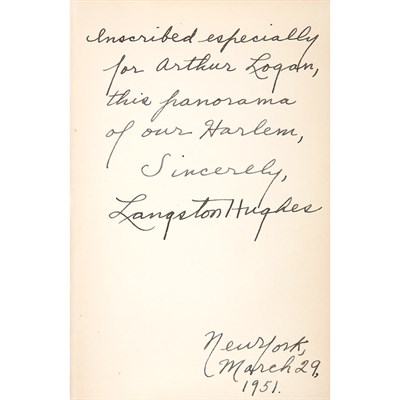 Inscribed especially
for Arthur Logan,
this panorama
of our Harlem,
Sincerely,
Langston Hughes
New York,
March 29,
1951.